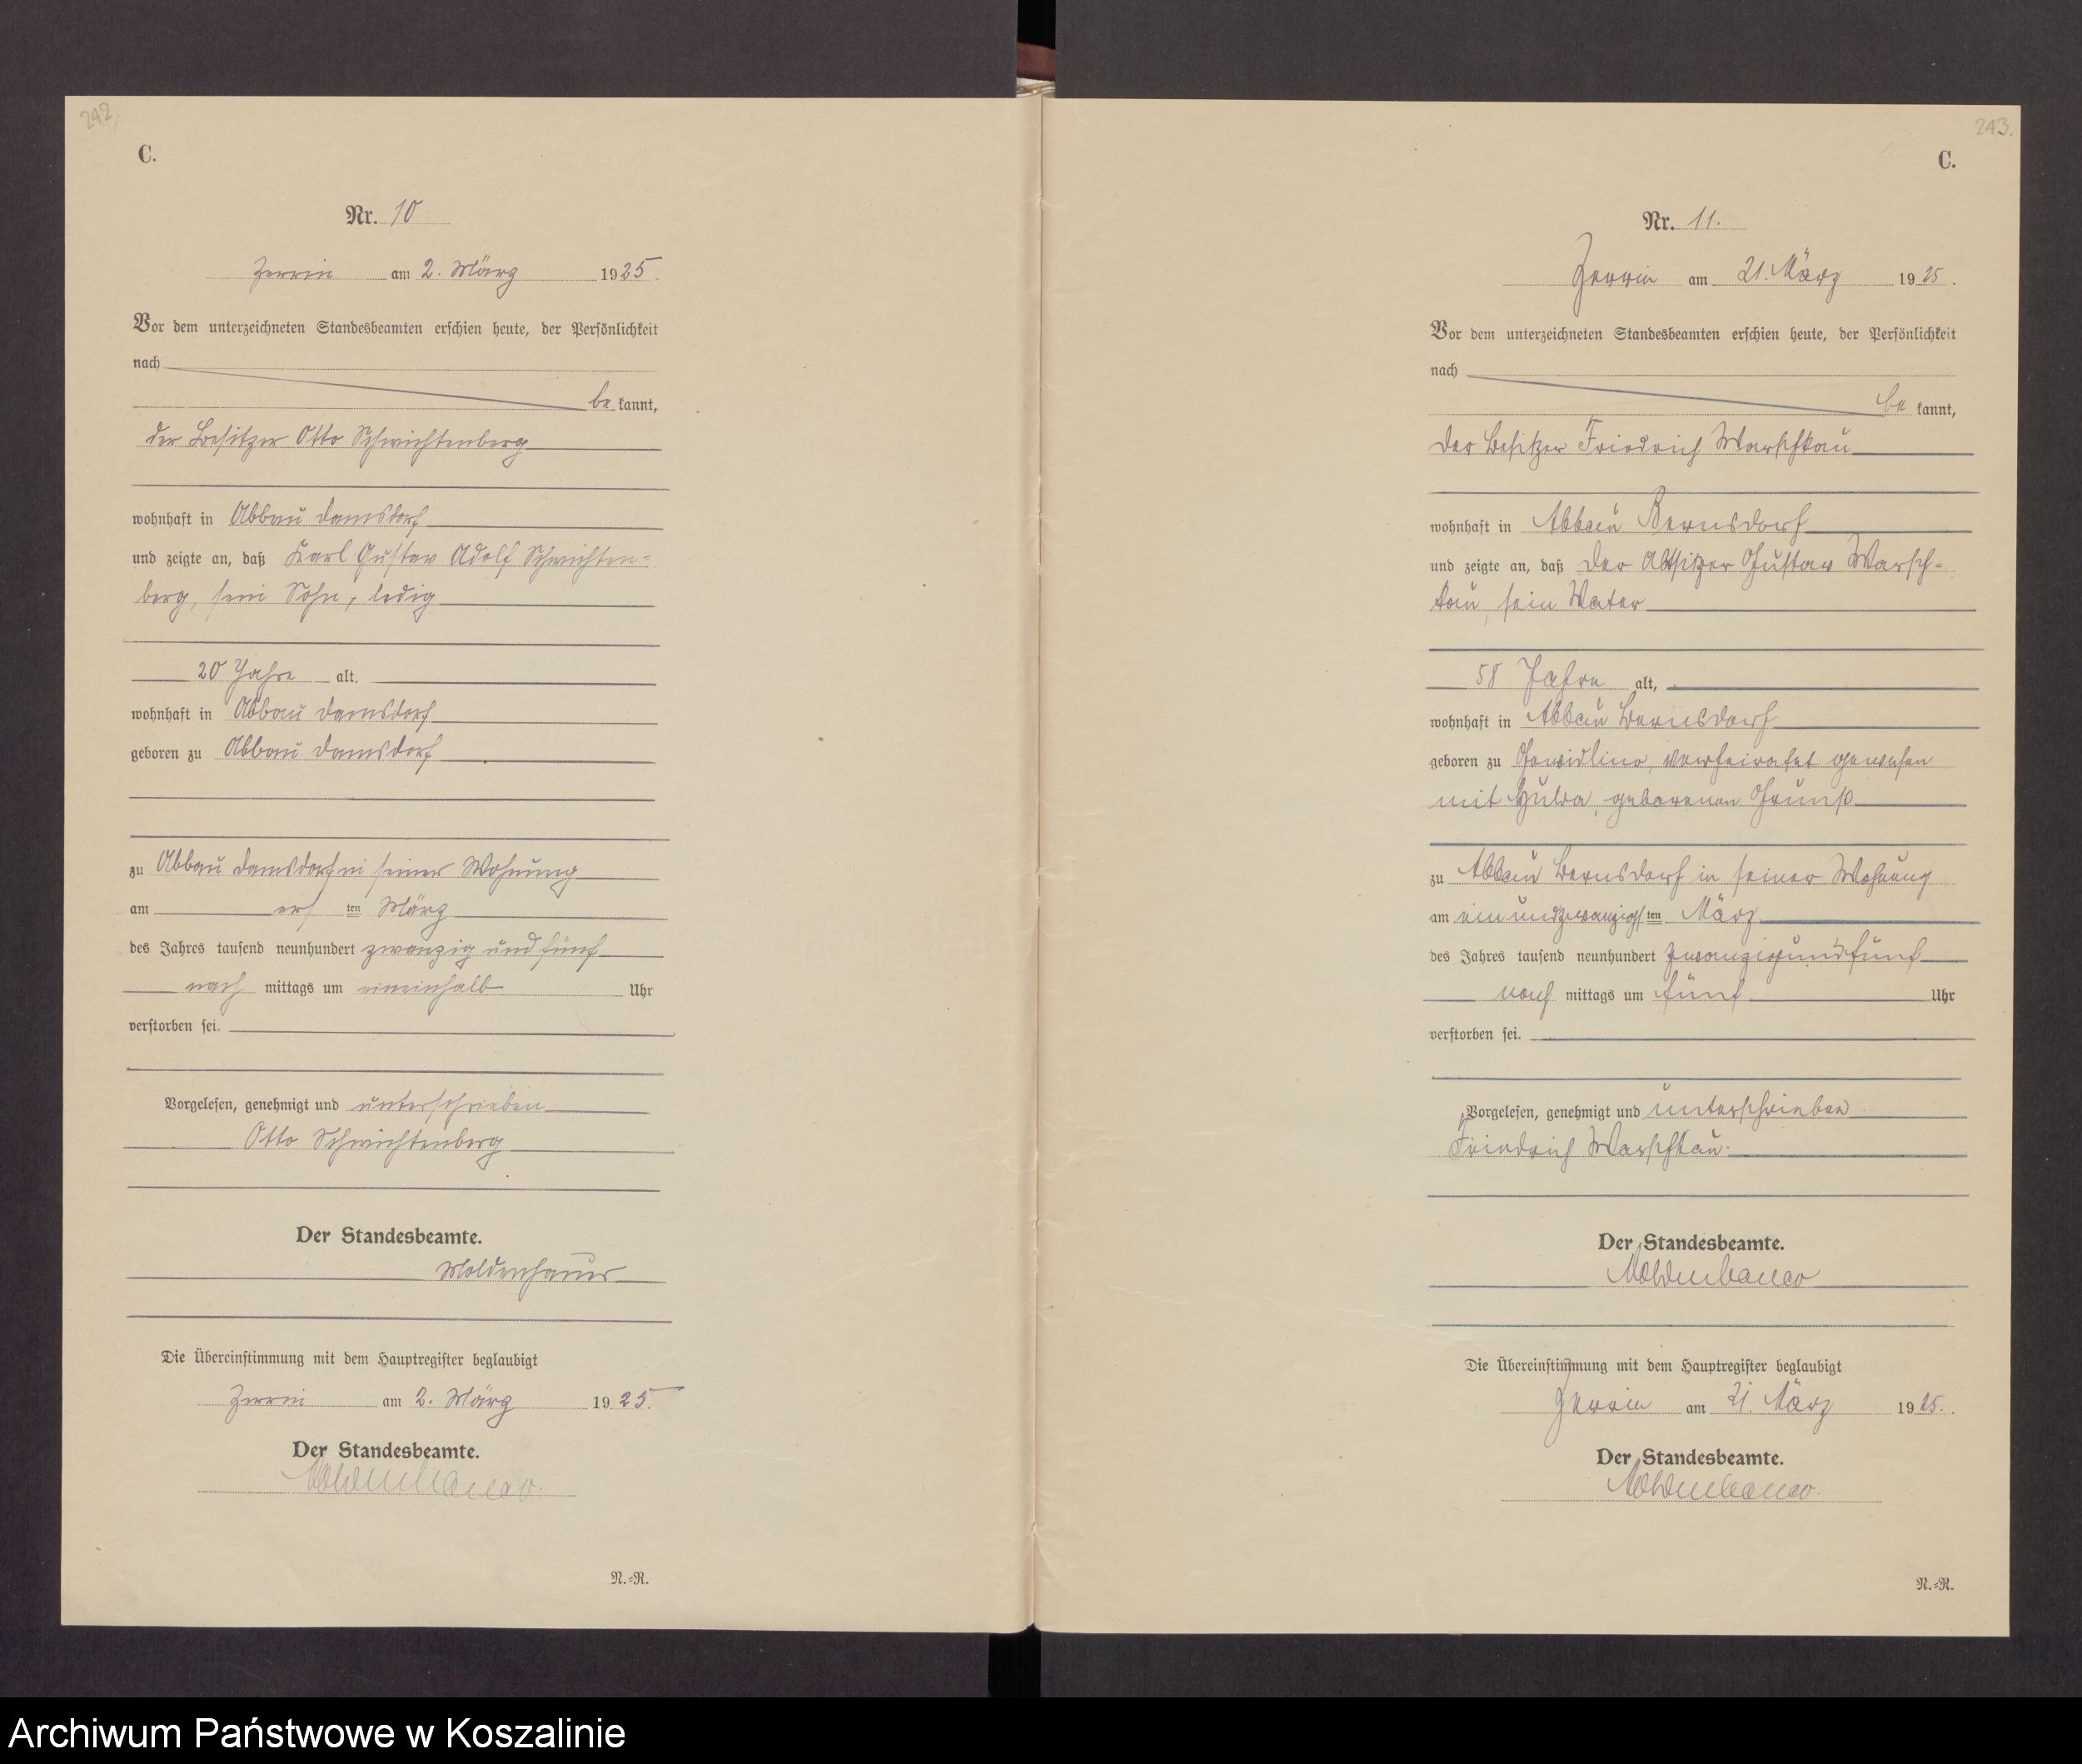 242.
C.
Nr. 10
Zerrin am 2. März 1925.
Vor dem unterzeichneten Standesbeamten erschien heute, der Persönlichkeit
nach
be kannt,
der Besitzer Otto Schwichtenberg
wohnhaft in Abbau Damsdorf
und zeigte an, daß Karl Gustav Adolf Schwichten-
berg, sein Sohn, ledig
20 Jahre alt,
wohnhaft in Abbau Damsdorf
geboren zu Abbau Damsdorf
zu Abbau Damsdorf in seiner Wohnung
am ers ten März
des Jahres tausend neunhundert zwanzig und fünf
nach mittags um eineinhalb Uhr
verstorben sei.
Vorgelesen, genehmigt und unterschrieben
Otto Schwichtenberg
Der Standesbeamte.
Moldenhauer
Die Übereinstimmung mit dem Hauptregister beglaubigt
Zerrin am 2. März 1925.
Der Standesbeamte.
Moldenhauer.
N.=R.
243.
C.
Nr. 11.
Zerrin am 21. März 1925.
Vor dem unterzeichneten Standesbeamten erschien heute, der Persönlichkeit
nach
be kannt,
der Besitzer Friedrich Warschkau
wohnhaft in Abbau Bernsdorf
und zeigte an, daß der Altsitzer Gustav Warsch-
kau, sein Vater
58 Jahre alt,
wohnhaft in Abbau Bernsdorf
geboren zu Gowidlino, verheiratet gewesen
mit Hulda, geborenen
zu Abbau Bernsdorf in seiner Wohnung
am einundzwanzigsten März
des Jahres tausend neunhundert zwanzigundfünf
nach mittags um fünf Uhr
verstorben sei.
Vorgelesen, genehmigt und unterschrieben
Friedrich Warschkau.
Der Standesbeamte.
Moldenhauer
Die Übereinstimmung mit dem Hauptregister beglaubigt
Zerrin am 21. März 1925.
Der Standesbeamte.
Moldenhauer.
N.=R.
Archiwum Państwowe w Koszalinie